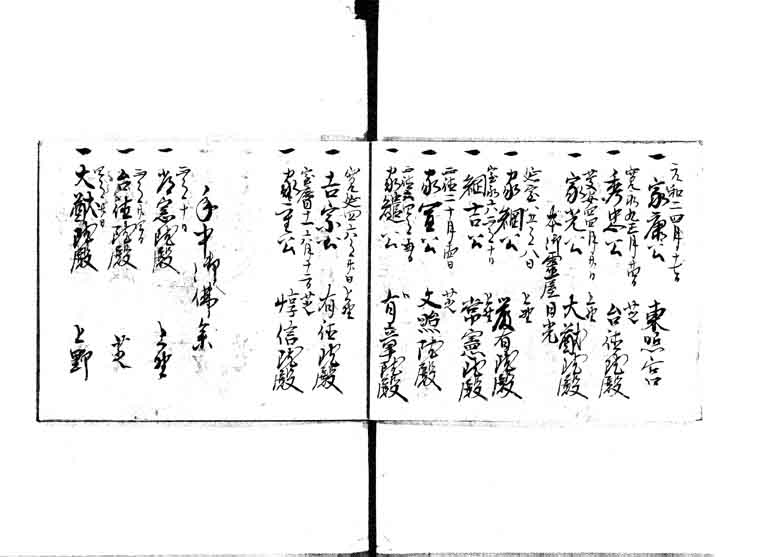 元和二四月十七日
一 家康公 東照宮
寛永九正月廿四日 芝
一 秀忠公 台徳院殿
慶安四四月廿日 上野
一 家光公 大猷院殿
本御霊屋日光
延宝八五月八日 上野
一 家綱公 厳有院殿
宝永六正月十日 上野
一 綱吉公 常憲院殿
正徳二十月十四日 芝
一 家宣公 文照院殿
一 家継公 有章院殿
寛延四六月廿日 上野
一 吉宗公 有徳院殿
宝暦十一六月十二日 芝
一 家重公 惇信院殿
年中御佛参
正月十日
一 常憲院殿 上野
一 台徳院殿 芝
一 大猷院殿 上野